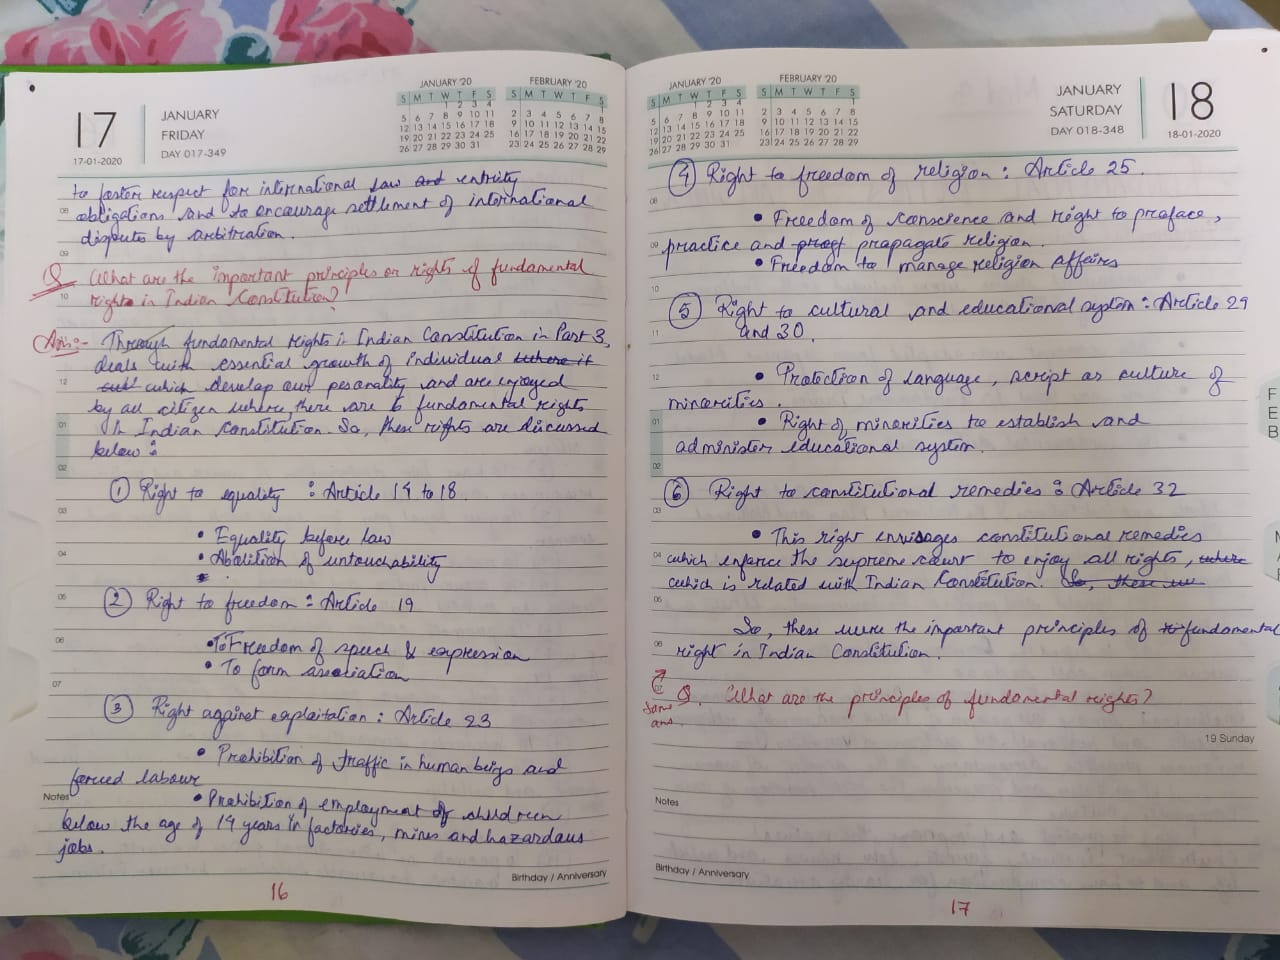 17
17-01-2020
JANUARY
FRIDAY
DAY 017-349
JANUARY '20
S M T W T F S
1 2 3 4
5 6 7 8 9 10 11
12 13 14 15 16 17 18
19 20 21 22 23 24 25
26 27 28 29 30 31
FEBRUARY '20
S M T W T F S
1
2 3 4 5 6 7 8
9 10 11 12 13 14 15
16 17 18 19 20 21 22
23 24 25 26 27 28 29
to foster respect for international law and entrity
obligations and to encourage settlement of international
disputes by arbitration.
Q What are the important principles or rights of fundamental
rights in Indian Constitution?
Ans:- Through fundamental rights in Indian Constitution in Part 3,
deals with essential growth of individual where it
which develop our pesonality and are enjoyed
by all citizen where, there are 6 fundamental rights
in Indian Constitution. So, these rights are discussed
below :
① Right to equality : Article 14 to 18.
• Equality before law
• Abolition of untouchability
② Right to freedom : Article 19
• To Freedom of speech & expression
• To form association
③ Right against exploitation : Article 23
• Prohibition of traffic in human beigs and
forced labour
• Prohibition of employment of children
below the age of 14 years in factories, mines and hazardous
jobs.
08
09
10
11
12
01
02
03
04
05
06
07
Notes
Birthday / Anniversary
16
JANUARY '20
S M T W T F S
1 2 3 4
5 6 7 8 9 10 11
12 13 14 15 16 17 18
19 20 21 22 23 24 25
26 27 28 29 30 31
FEBRUARY '20
S M T W T F S
1
2 3 4 5 6 7 8
9 10 11 12 13 14 15
16 17 18 19 20 21 22
23 24 25 26 27 28 29
JANUARY
SATURDAY
DAY 018-348
18
18-01-2020
④ Right to freedom of religion : Article 25.
• Freedom of conscience and right to proface,
practice and propagate religion.
• Freedom to manage religion affairs
⑤ Right to cultural and educational system : Article 29
and 30.
• Protection of language, script or culture of
minorities.
• Right of minorities to establish and
administer educational system.
⑥ Right to constitutional remedies : Article 32
• This right envisages constitutional remedies
which enforce the supreme court to enjoy all rights, where
which is related with Indian Constitution. So, these
So, these were the important principles of fundamental
right in Indian Constitution.
Q. What are the principles of fundamental rights?
Same
ans.
08
09
10
11
12
01
02
03
04
05
06
07
19 Sunday
Notes
Birthday / Anniversary
17
F
E
B